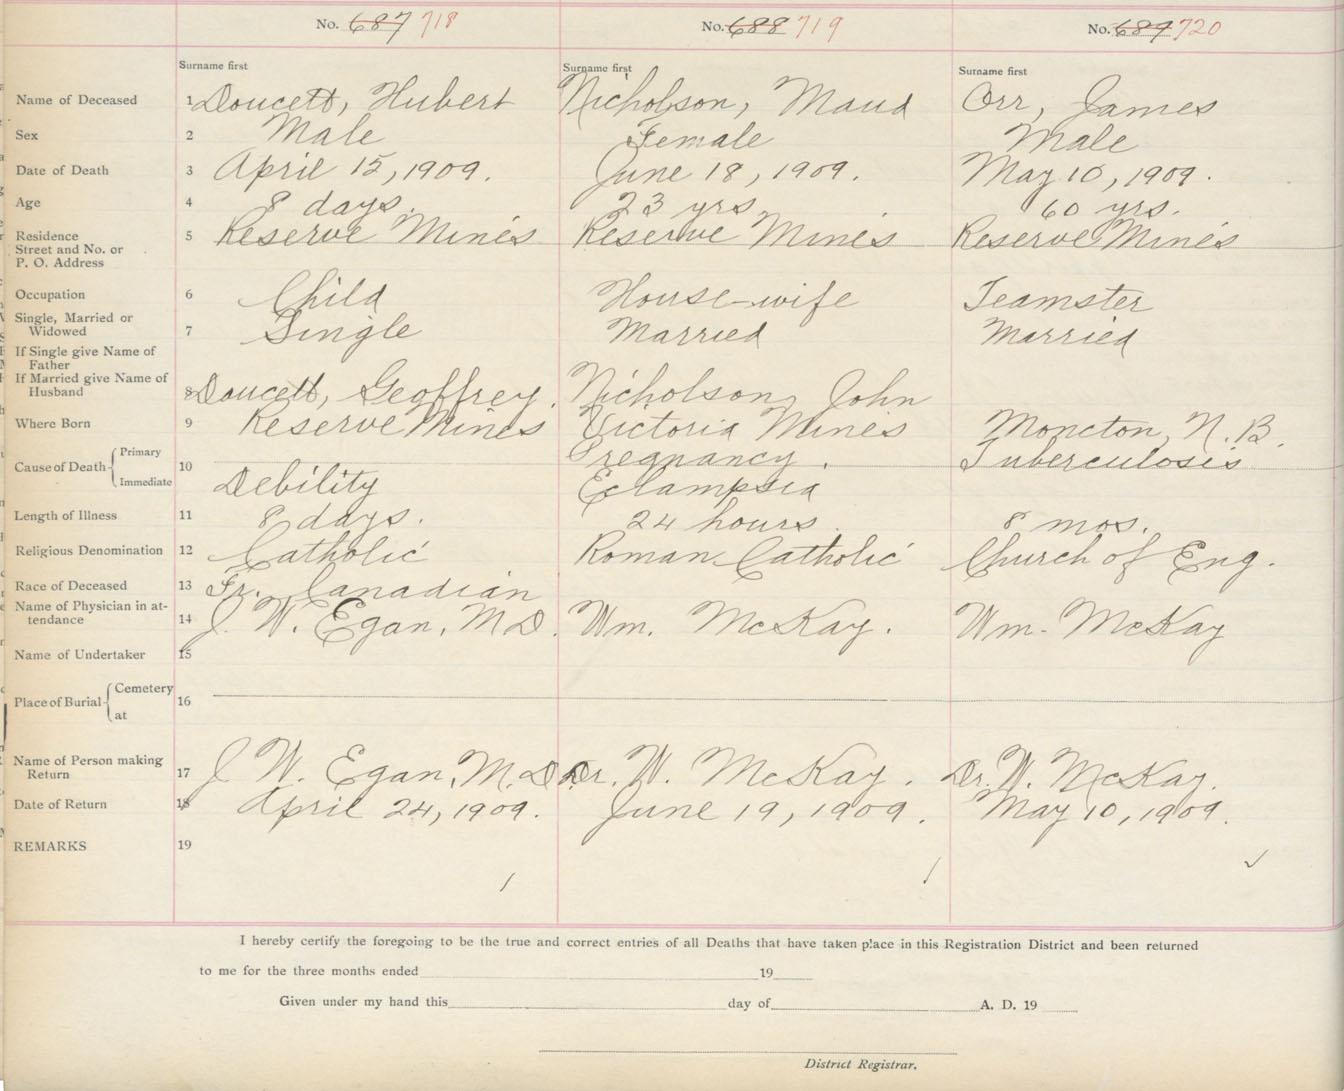 No. 687 718 No. 688 719 No. 689 720
Surname first Surname first Surname first
Name of Deceased 1 Doucett, Hubert Nicholson, Maud Orr, James
Sex 2 Male Female Male
Date of Death 3 April 15, 1909. June 18, 1909. May 10, 1909.
Age 4 8 days. 23 yrs. 60 yrs.
Residence 5 Reserve Mines Reserve Mines Reserve Mines
Street and No. or
P. O. Address
Occupation 6 Child House-wife Teamster
Single, Married or
Widowed 7 Single Married Married
If Single give Name of
Father
If Married give Name of
Husband 8 Doucett, Geoffrey. Nicholson, John
Where Born 9 Reserve Mines Victoria Mines Moncton, N. B.
Primary Pregnancy. Tuberculosis
Cause of Death 10
Immediate Debility Eclampsia
Length of Illness 11 8 days. 24 hours. 8 mos.
Religious Denomination 12 Catholic Roman Catholic Church of Eng.
Race of Deceased 13 Fr. Canadian
Name of Physician in at-
tendance 14 J. W. Egan, M.D. Wm. McKay. Wm. McKay
Name of Undertaker 15
Cemetery
Place of Burial 16
at
Name of Person making
Return 17 J W. Egan, M.D. Dr. W. McKay. Dr. W. McKay.
Date of Return 18 April 24, 1909. June 19, 1909. May 10, 1909.
REMARKS 19
I hereby certify the foregoing to be the true and correct entries of all Deaths that have taken place in this Registration District and been returned
to me for the three months ended 19
Given under my hand this day of A. D. 19
District Registrar.